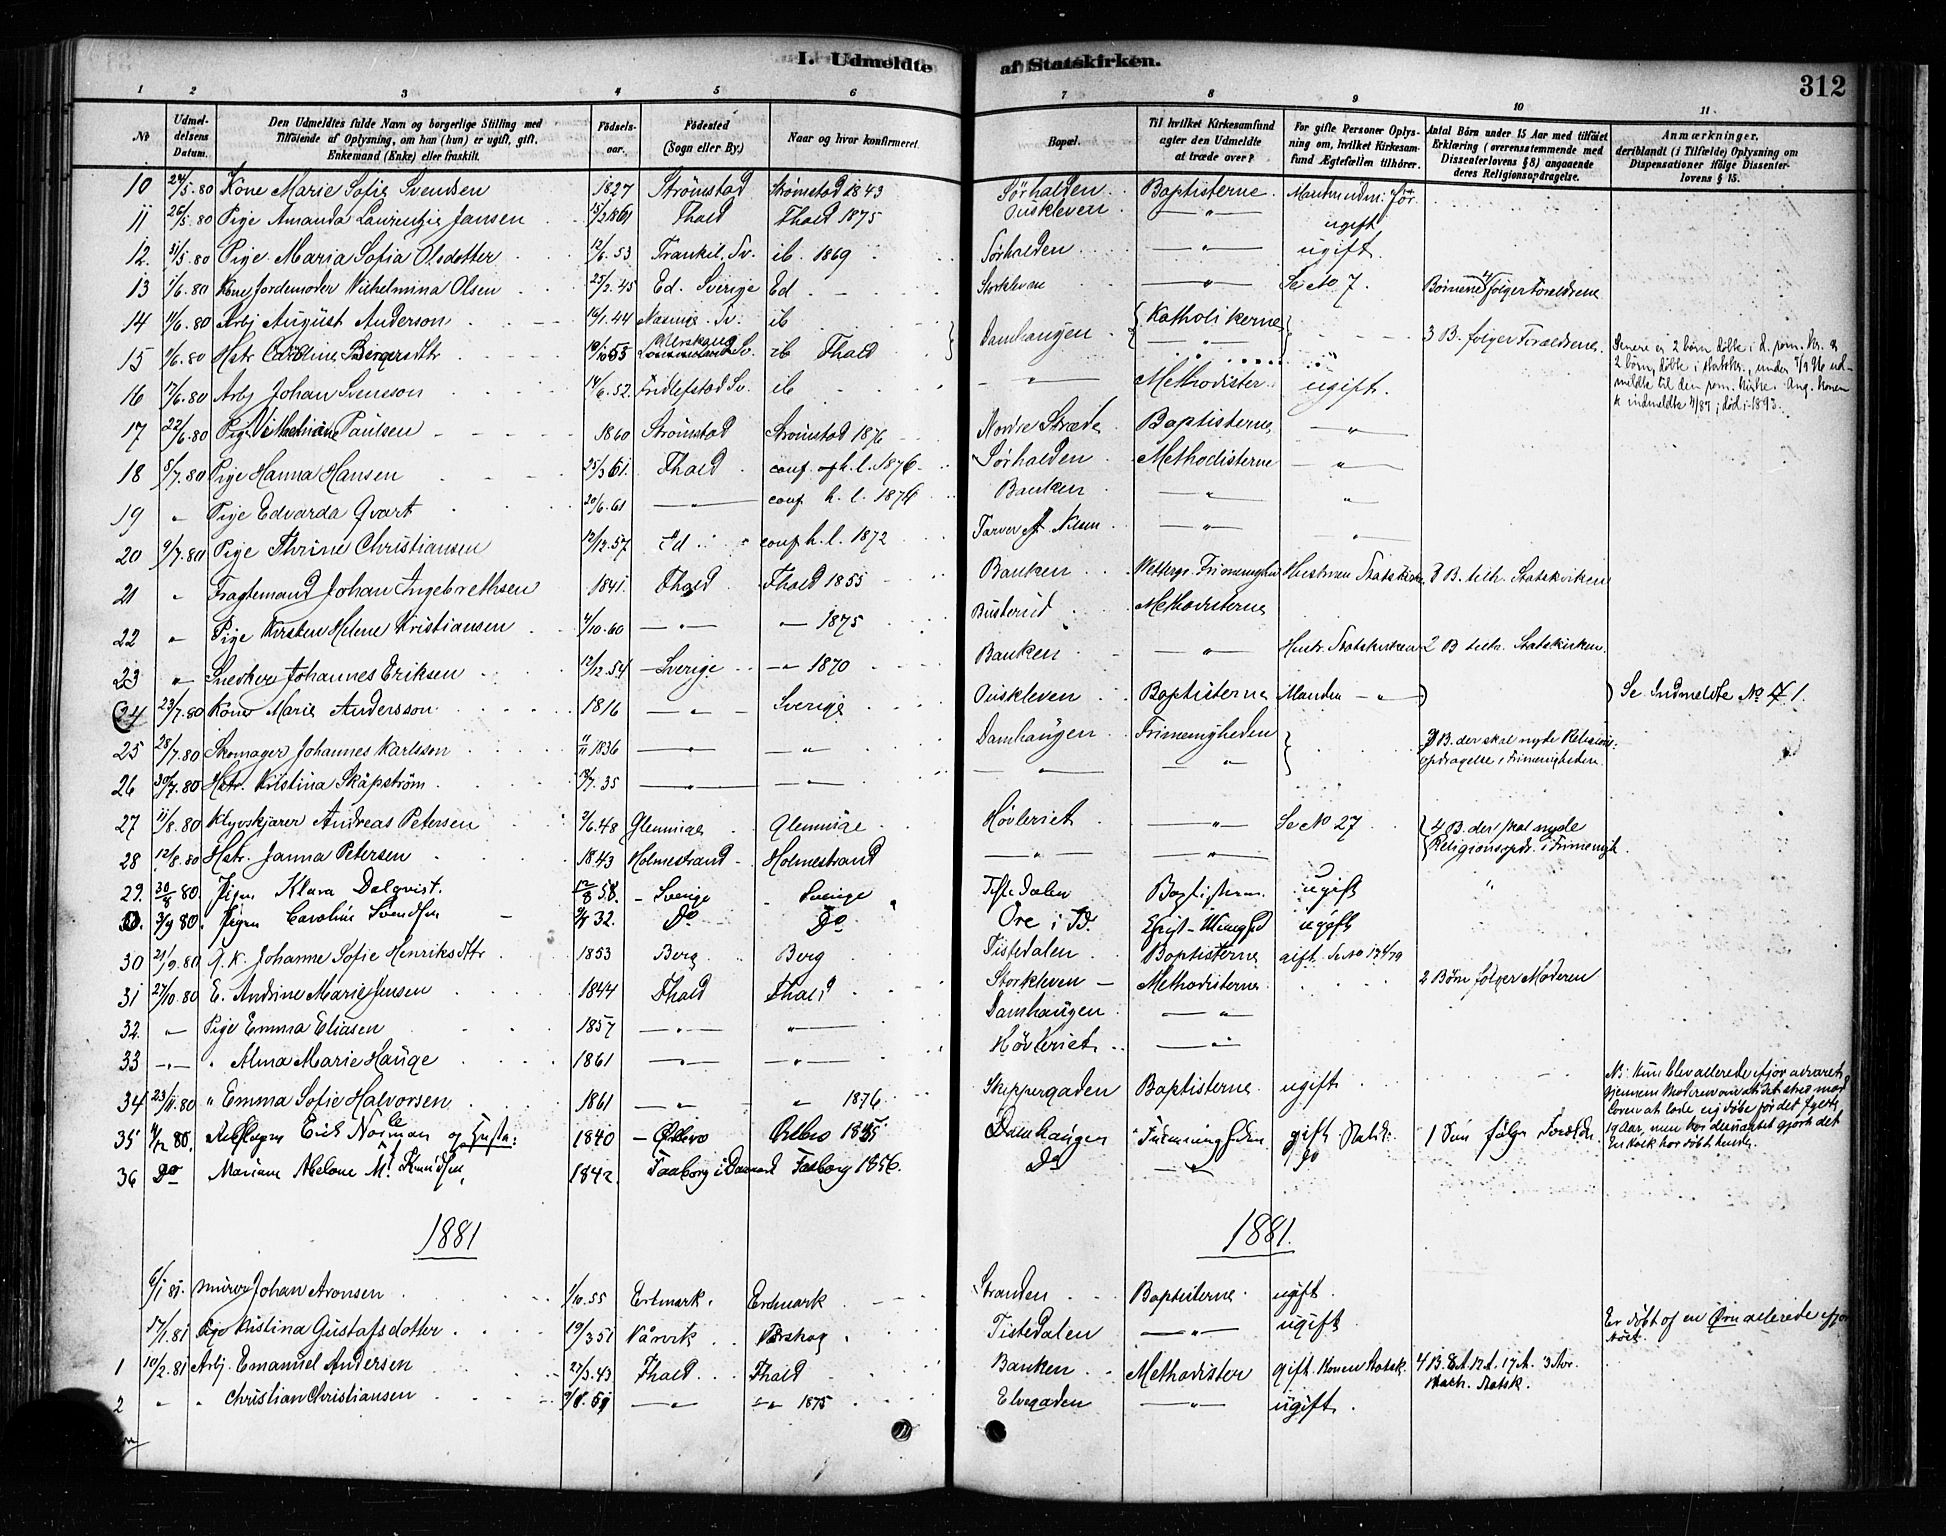 I. Udmeldte af Statskirken.
312
1 2 3 4 5 6 7 8 9 10 11
No
Udmeldelsens Datum.
Den Udmeldtes fulde Navn og borgerlige Stilling med
Tilföiende af Oplysning, om han (hun) er ugift, gift,
Enkemand (Enke) eller fraskilt.
Födselsaar.
Födested
(Sogn eller By.)
Naar og hvor konfirmeret.
Bopæl.
Til hvilket Kirkesamfund
agter den Udmeldte
at træde over?
For gifte Personer Oplysning om, hvilket Kirkesamfund Ægtefællen tilhörer.
Antal Börn under 15 Aar med tilföiet
Erklæring (overensstemmende med
Dissenterlovens § 8) angaaende
deres Religionsopdragelse.
Anmærkninger,
deriblandt (i Tilfælde) Oplysning om
Dispensationer ifölge Dissenterlovens § 15.
10 24/5.80 Kone Marie Sofie Svendsen 1827 Strömstad Strömstad 1843 Sörhalden Baptisterne
11 26/5.80 Pige Amanda Laurentzie Jansen 1861 Fhald Fhald 1875 Ouskleven —"— ugift
12. 31/5.80 Pige Maria Sofia Olsdotter 12/6.53 Frankil. Sv. ib. 1869 Sörhalden —"— ugift.
13 1/6.80 Kone Jordemoder Vilhelmina Olsen 25/2.45 Ed. Sverige Ed Storkleven —"— Se No 7. Börnene fölger Forældrene
14 1/6.80 Arbj August Anderson 16/1.44 ib Damhaugen Katholikerne
15 1/6.80 Hstr Caroline Bergersdtr ib Fhald —"— 3 B. fölger Forældrene. Senere er 2 börn döbte i d. rom. K. &
2 börn, döbte i statsk., under 7/9 96 udmeldte til den rom. Kirke. Ang. Konen
16 17/6.80 Arbj Johan Svenson 14/6.52. Fridlefstad Sv. ib —"— Methodister ugift.
17 22/6.80 Pige Vilhelmine Paulsen 1860 Strömstad Strömstad 1876 Nordre Stræde Baptisterne —"—
18 5/7.80 Pige Hanna Hansen 25/3 61. Fhald conf. h. l. 1876 Sörhalden Methodisterne —"—
19 " Pige Edvarda Qvart 20/6.61 —— conf h. l. 1876 Banken —"— —"—
20 9/7.80 Pige Thrine Christiansen 12/12.57 Id conf h. l. 1872 —"— —"—
21 " Fragtemand Johan Ingebrethsen 1841. Fhald Fhald 1855 Banken Frimenighed Hustruen Statskirken 3 B. tilh. Statskirken
22 " Pige Kirsten Helene Kristiansen 4/10.60 —"— —"— 1875 Busterud Methodisterne
23 " Snedker Johannes Eriksen 12/12.54 Sverige —"— 1870 Banken —"— Hustr. Statskirken 2 B tilh. Statskirken.
24 23/7.80 Kone Marie Andersson 1816 —"— Sverige Ouskleven Baptisterne Manden —"— Se Indmeldte No 1.
25 28/7.80 Skomager Johannes Karlsson 11/11 1836 —"— —"— Damhaugen Frimenigheden 3 B. der skal nyde Religions-
opdragelse i Frimenigheden
26 30/7.80 Hstr. Kristina Skäpström 13/7.35 —"— —"— —"— —"—
27 11/8.80 Andreas Petersen 2/6.48 Glemmige Glemmige Hövleriet —"— Se No 27 4 B. der skal nyde
Religionsopdr. i Frimenigh.
28 12/8.80 Hstr. Janna Petersen 1843 Holmestrand Holmestrand —"— —"—
29. 30/8 80. Pigen Klara Dalqvist. 12/8 58. Sverige Sverige Tistedalen Baptistern. ugift "
3/9 80. Pigen Caroline Svendsen 32. Do Do Ore i Id. ugift
30 21/9.80 G.K. Johanne Sofie Henriksdttr 1853 Berg Berg Tistedalen Baptisterne gift. Se No 17 4/79
31 27/10.80 E. Andrine Marie Jensen 1844 Fhald Fhald Storkleven — Methodisterne 2 Börn fölger Moderen
32. —"— Pige Emma Eliasen 1857 —"— —"— Damhaugen —"—
33 —"— " Alma Marie Hauge 1861 —"— —"— Hövleriet —"—
34 23/11.80 " Emma Sofie Halvorsen 1861 —"— " 1876 Skippergaden Baptisterne ugift. Ns: Kun blev allerede ifjor advaret
gjennem Moderen om at det stred mod
Loven at lade sig döbe för det fyldte
19 Aar, men har desuagtet gjort det
35 80. Erik Norman og Hustr: 1840 Örebro Orebro 1855 Damhaugen Frimenigheden gift Statsk. 1 Sön fölger Foreldr.
36 Do Mariane Abelone M. Knudsen, 1842. Faaborg i Danmark Faaborg 1856. Do —"— Do
1881 1881.
6/1 81. Murer Johan Aronsen 1/10.55 Ertmark. Ertmark Stranden Baptisterne ugift.
17/1.81 Pige Kristina Gustafsdotter 19/3.51 Vårvik Tistedalen —"— ugift. Er döbt af en Örn allerede ifjor
höst.
1 10/2.81 Arbj. Emanuel Andersen 27/3.43 Fhald Fhald Banken Methodister gift. Konen Statsk. 4 B. 8 A. 12 A. 17 A. 3 Aar.
Statsk.
2 " " Christian Christiansen —"— —"— 1875 Elvegaden —"— ugift.